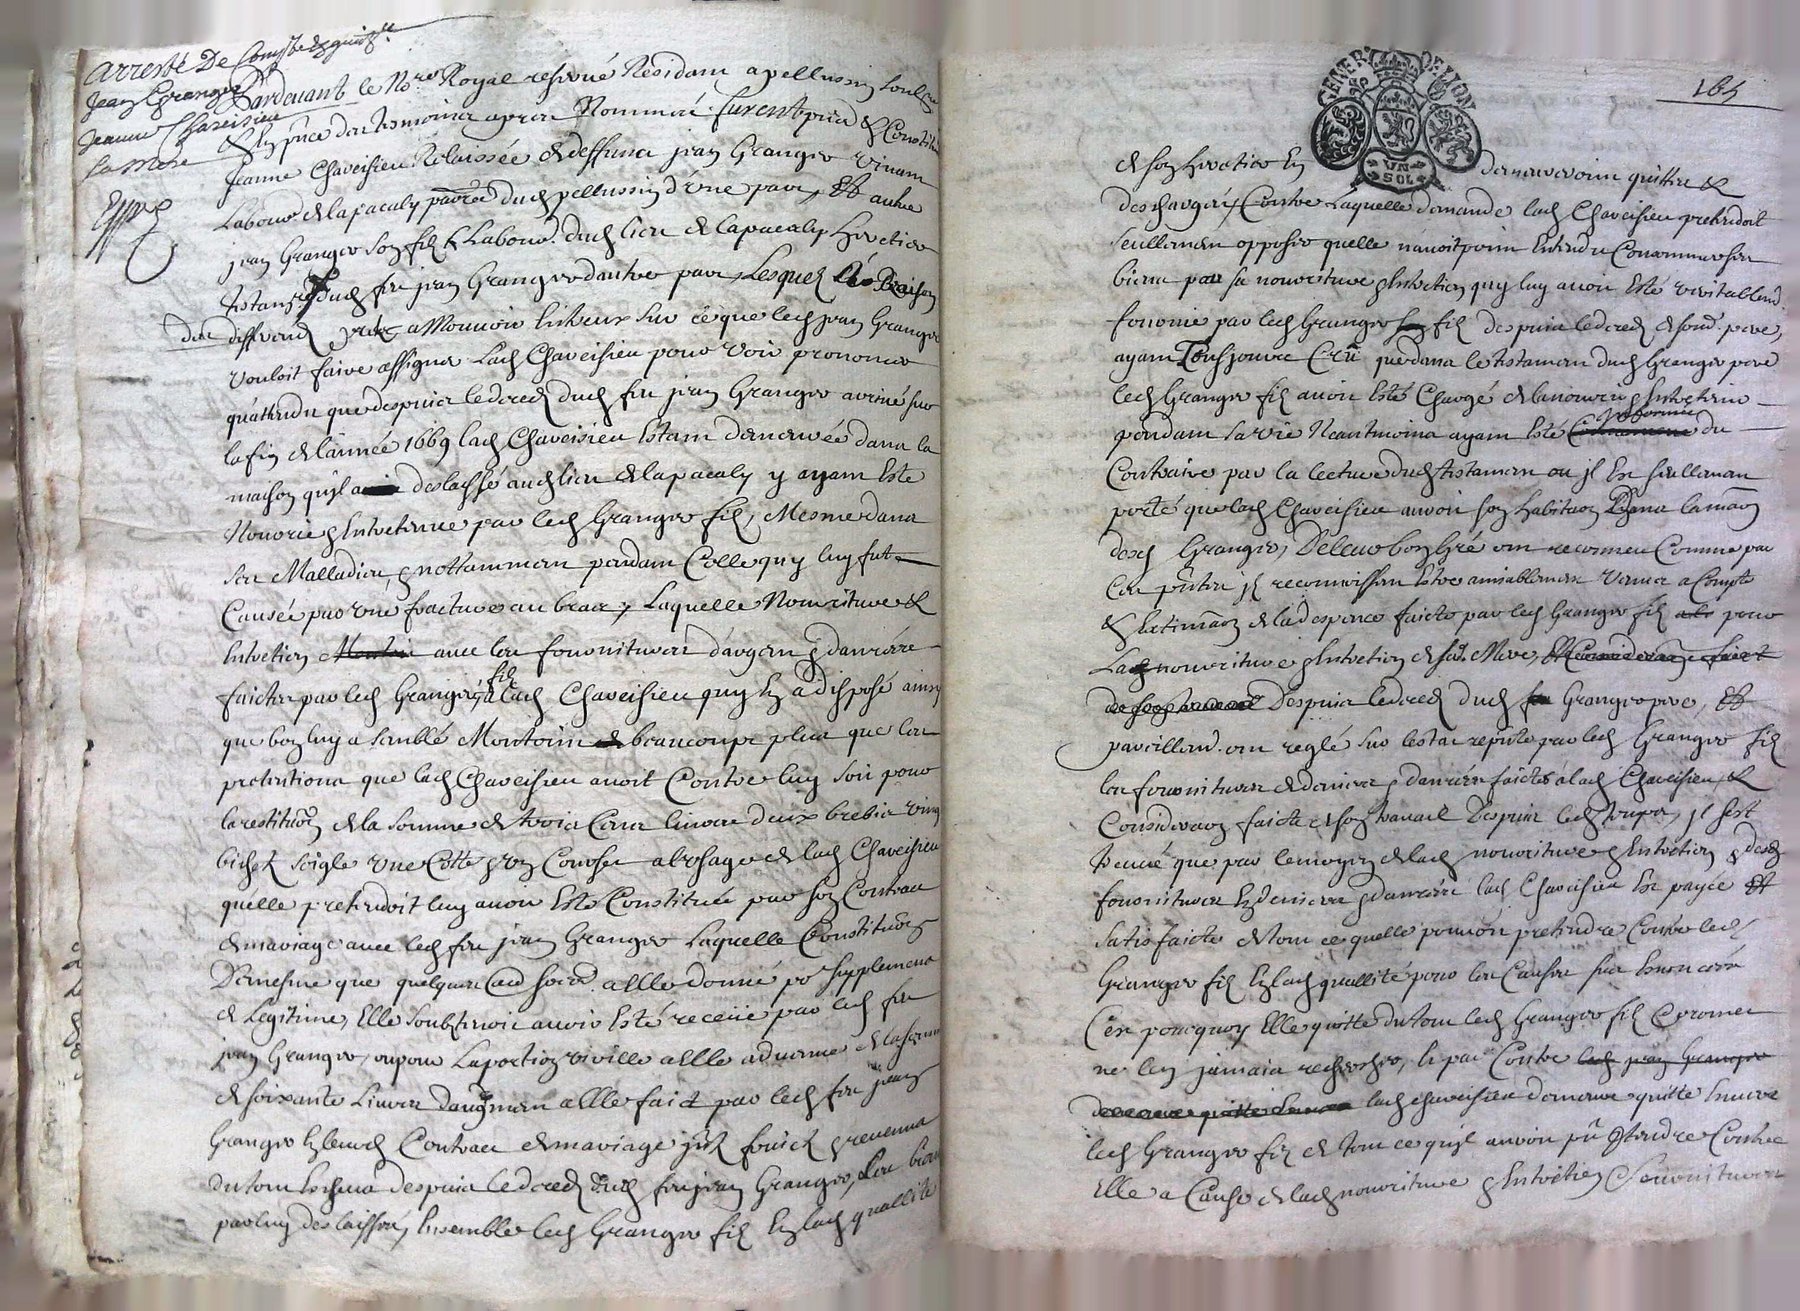 Arresté De Compte & quittce
Jean Granger
Jeanne Chaveisieu
sa Mere
Expe
Pardevant le Nore Royal reservé Residant a pellussin soubzne
& En pnce des tesmoins apres Nommés furent pnts & Constitués
Jeanne Chaveisieu Relaissée de deffunct jean Granger vivant
Labour de lapacaly parroe dud pellussin d'une part, Et autre
jean Granger son filz Labour. dud lieu de lapacaly heretier
testamre dud feu jean Granger dautre part, Lesquelz Raison
du differend a Mouvoir Entreux sur ce que led jean Granger
vouloit faire assigner Lad Chaveisieu pour voir prononcer
quattendu que despuis le deced dud feu jean Granger arrivé sur
la fin de lannée 1669 lad Chaveisieu Estant demeurée dans la
maison quil a deslaissé aud lieu de lapacaly y ayant Esté
Nourrie & Entretenue par led Granger filz, Mesme dans
ses Malladies, & nottamment pendant Celle quy luy fut
Causée par une facture au bras, Laquelle Nourriture &
Entretien avec les fournitures dargent & danrées
faictes par led Granger filz a lad Chaveisieu quy En a disposé ainsy
que bon luy a semblé Montoint beaucoupt plus que les
pretentions que lad Chaveisieu avoit Contre luy soit pour
la restituon de la somme de trois Cens livres deux brebis vingt
bichetz seigle une Cotte & un Couvset a lusage de lad Chaveisieu
quelle pretendoit luy avoir Esté Constituée par son Contract
de mariage avec led feu jean Granger Laquelle Constitution
De mesme que quelques a Elle donné pr supplement
de Legitime, Elle soubztenoit avoir Esté receüe par led feu
jean Granger, ou pour La portion virille a Elle advenue de la somme
de soixante Livres daugment a Elle faict par led feu jean
Granger En leurd Contract de mariage fruictz & revenus
du tout Escheus despuis le deced dud feu jean Granger, Les biens
par luy deslaissés, Ensemble led Granger filz En lad quallité
GENER DE LION
UN SOL
165
de son heretier En demeureront quittes &
deschargés, Contre Laquelle demande lad Chaveisieu pretendoit
seullement opposer quelle navoit point Entendu Consommer ses
biens par sa nourriture & Entretien quy luy avoit Esté veritablemt
fournie par led Granger filz despuis le deced de sond. pere,
ayant Tousjours Crû que dans le testament dud Granger pere
led Granger filz avoit Esté Chargé de la nourrir & Entretenir
pendant sa vie Neantmoins ayant Esté Informée du
Contraire par la lecture dud testament ou jl Est seullement
porté que lad Chaveisieu auroit son habitaon Dans la maison
dud Granger, De leur bon Gré ont reconneu Comme par
Ces pntes jlz reconnoissent Estre amiablement venus a Compte
& Estimaon de la despence faicte par led Granger filz pour
Lad nourriture & Entretien de sad. Mere,
Despuis le deced dud Granger pere, Et
pareillemt. ont reglé sur lestat reputé par led Granger filz
les fournitures de deniers & danrées faictes a lad Chaveisieu, &
Consideraon faicte de son travail Despuis led temps, jl sest
treuvé que par le moyen de lad nourriture & Entretien & desd
fournitures En deniers & danrées lad Chaveisieu Est payée Et
satisfaicte de tout ce quelle pouvoit pretendre Contre led
Granger filz En lad quallité pour les Causes sus Enoncées
Cest pourquoy Elle quitte du tout led Granger filz & promet
ne len jamais rechercher, & par Contre led jean Granger
lad chaveisieu demeure quitte Envers
led Granger filz de tout ce quil auroit pû ptendre Contre
Elle a Cause de lad nourriture & Entretien & fournitures